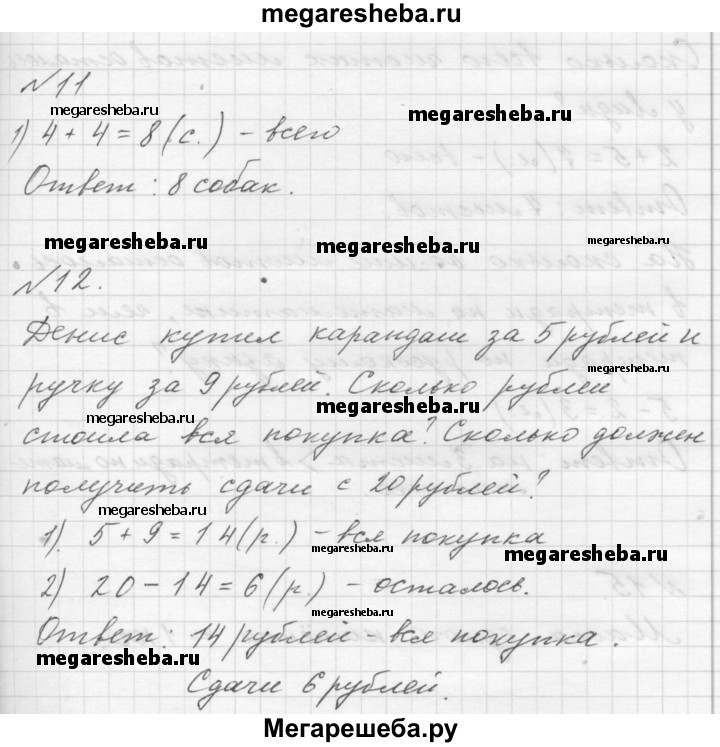 megaresheba.ru
№11
megaresheba.ru
megaresheba.ru
1) 4 + 4 = 8 (с.) - всего
Ответ : 8 собак.
megaresheba.ru
megaresheba.ru
megaresheba.ru
№12.
Денис купил карандаш за 5 рублей и
ручку за 9 рублей. Сколько рублей
megaresheba.ru
megaresheba.ru
стоила вся покупка? Сколько должен
получить сдачи с 20 рублей?
megaresheba.ru
1) 5 + 9 = 14 (р.) - вся покупка
megaresheba.ru
megaresheba.ru
2) 20 - 14 = 6 (р.) - осталось.
megaresheba.ru
Ответ: 14 рублей - вся покупка.
megaresheba.ru
Сдачи 6 рублей.
Мегарешеба.ру